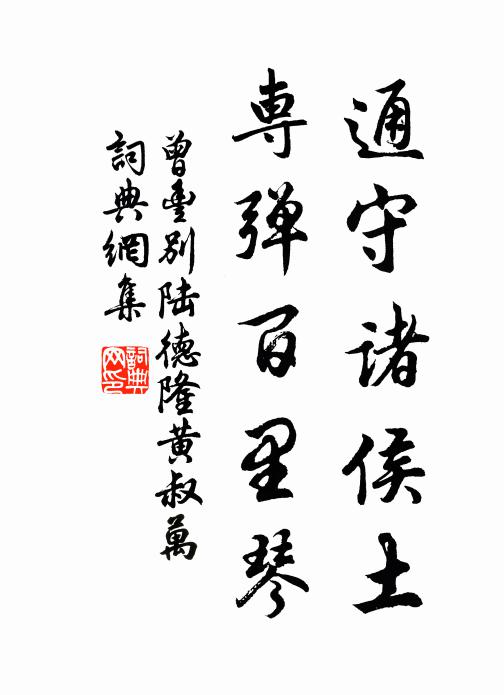 通守諸侯土
専弾百里琴
曾豊别陆德隆黄叔萬
詞典網集
詞典网印